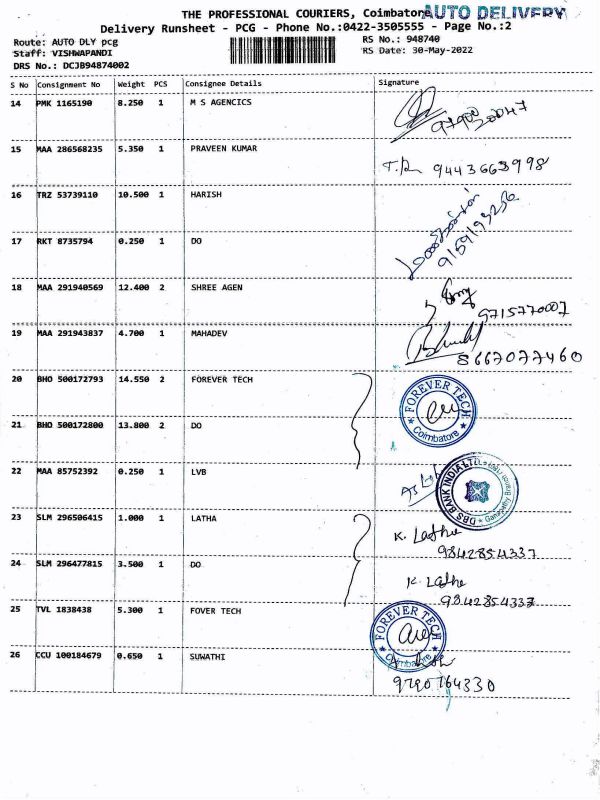 THE PROFESSIONAL COURIERS, Coimbatore AUTO DELIVERY
Delivery Runsheet - PCG - Phone No.:0422-3505555 - Page No.:2
Route: AUTO DLY pcg RS No.: 948740
Staff: VISHWAPANDI RS Date: 30-May-2022
DRS No.: DCJB94874002
S No Consignment No Weight PCS Consignee Details Signature
14 PMK 1165190 8.250 1 M S AGENCICS
15 MAA 286568235 5.350 1 PRAVEEN KUMAR
9443663998
16 TRZ 53739110 10.500 1 HARISH
9159193256
17 RKT 8735794 0.250 1 DO
18 MAA 291940569 12.400 2 SHREE AGEN
9715770007
19 MAA 291943837 4.700 1 MAHADEV
8667077460
20 BHO 500172793 14.550 2 FOREVER TECH
FOREVER TECH
Coimbatore
21 BHO 500172800 13.800 2 DO
22 MAA 85752392 0.250 1 LVB
DBS BANK INDIA LTD.
23 SLM 296506415 1.000 1 LATHA
K. Latha
9842854337
24 SLM 296477815 3.500 1 DO
K. Latha
9842854337
25 TVL 1838438 5.300 1 FOVER TECH
FOREVER TECH
Coimbatore
26 CCU 100184679 0.650 1 SUWATHI
9790764330